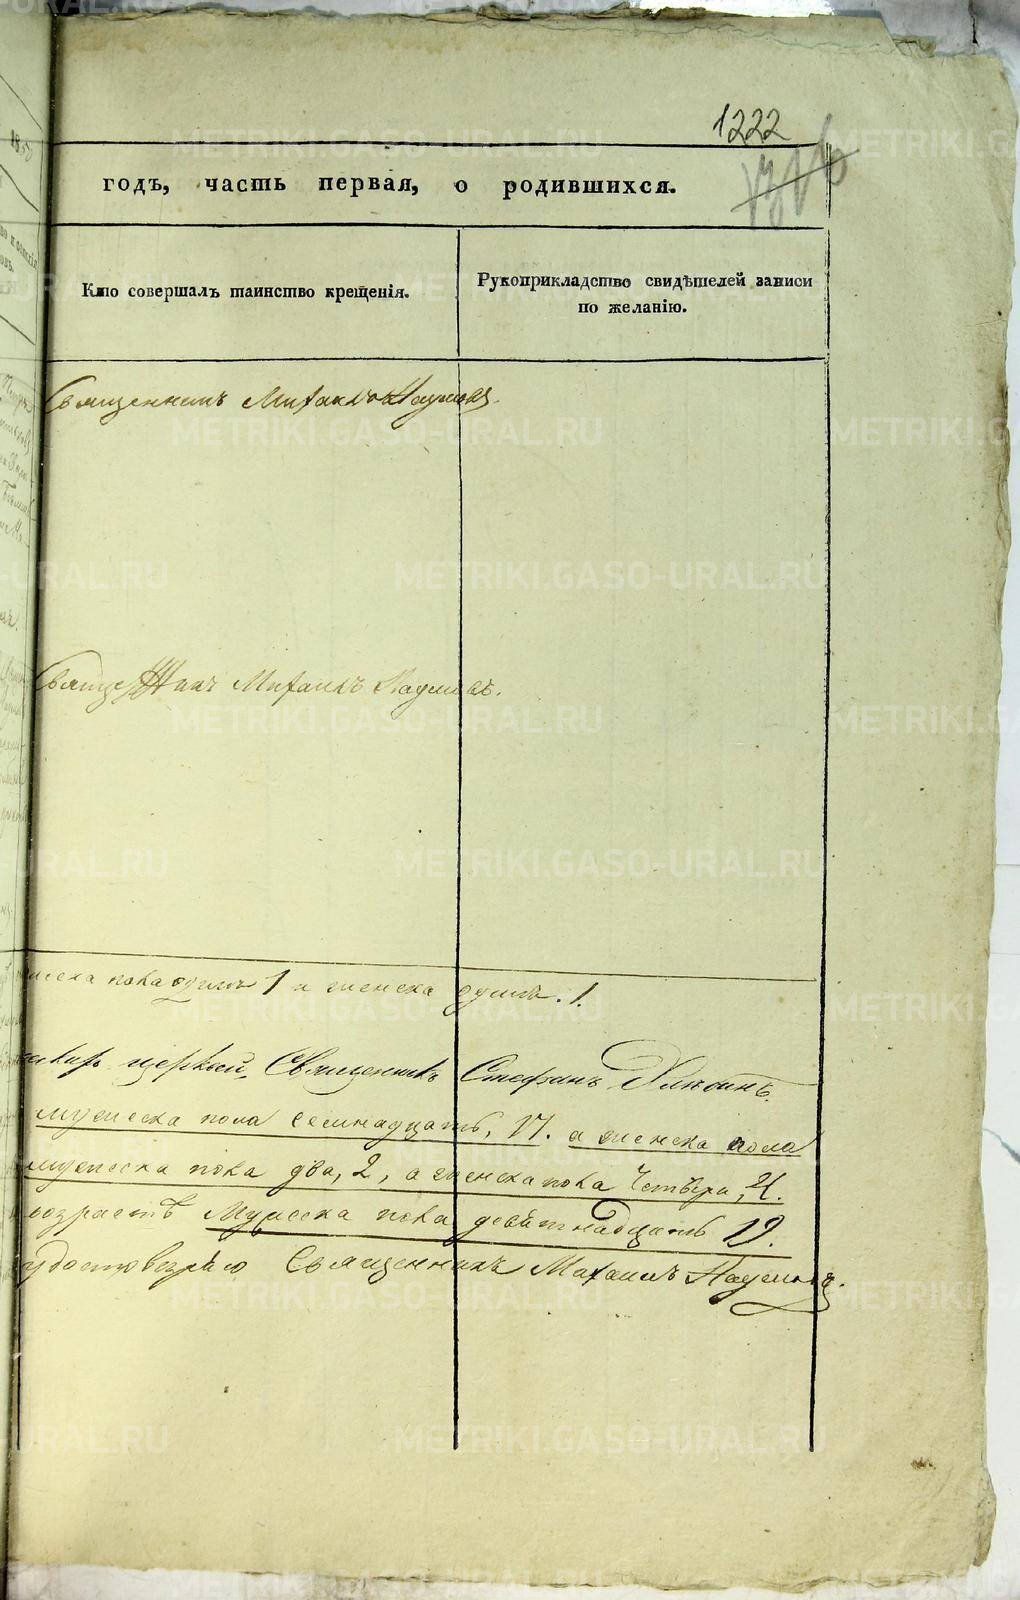 1222
годъ, часть первая, о родившихся.
Кто совершалъ таинство крещенія.
Рукоприкладство свидѣтелей записи
по желанію.
Священникъ Михаилъ Наумовъ.
Священникъ Михаилъ Наумовъ.
пола одинъ 1 и женска одинъ. 1.
церквей, Священникъ Стефанъ
мужеска пола семнадцать, 17. а женска пола
мужеска пола два, 2, а женска пола четыре, 4.
возрастѣ мужеска пола девятнадцать 19.
удостовѣряю Священникъ Михаилъ Наумовъ.
METRIKI.GASO-URAL.RU